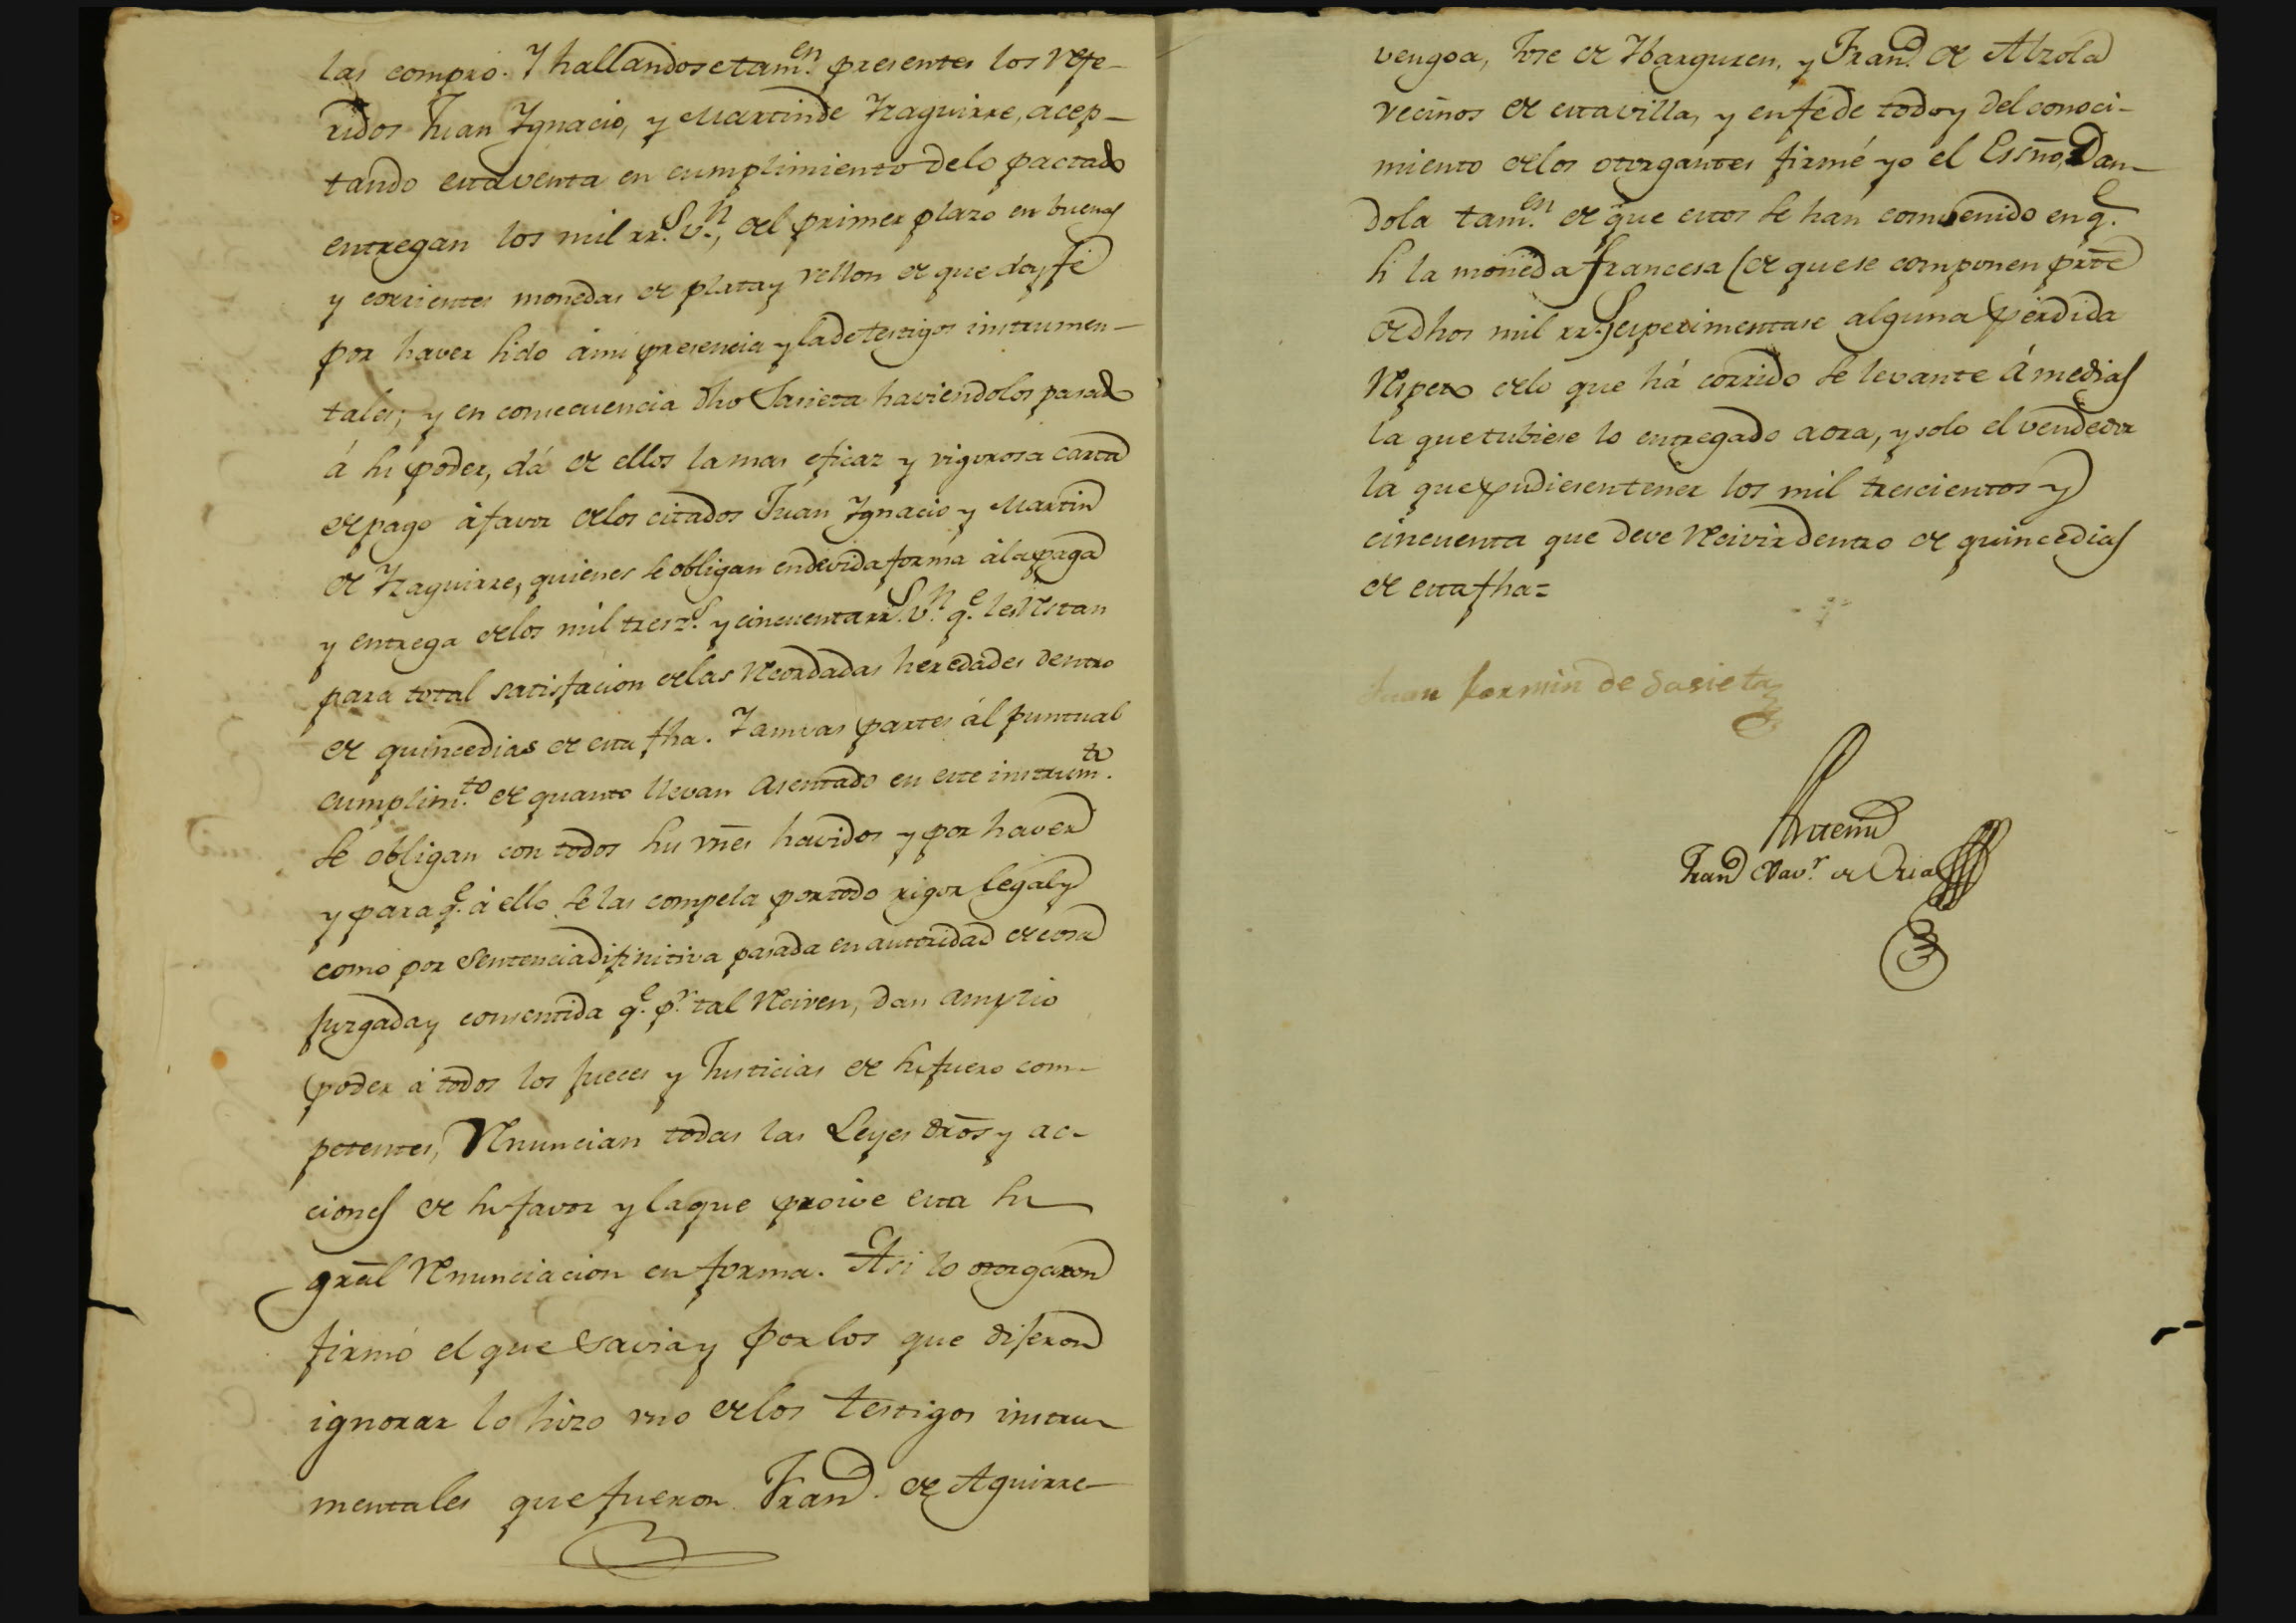 las compro. Y hallandose tamen. presentes los Refe-
ridos Juan Ygnacio, y Martin de Yzaguirre, acep-
tando esta venta en cumplimiento de lo pactado
entregan los mil rrs. vn., del primer plazo en buenas
y corrientes monedas de plata y vellon de que doy fé
por haver sido á mi presencia y la de testigos instrumen-
tales; y en consecuencia dho Sasieta haviendolos pasado
á su poder, dá de ellos la mas eficaz y vigorosa carta
de pago á favor de los citados Juan Ygnacio y Martin
de Yzaguirre, quienes se obligan en devida forma á la paga
y entrega de los mil tresz.s y cincuenta rrs. vn. qe. les Restan
para total satisfacion de las Recordadas heredades dentro
de quince dias de esta fha. Y amvas partes ál puntual
cumplim.to de quanto llevan asentado en este instrum.to
se obligan con todos sus vnes havidos y por haver
y para qe. á ello se las compela por todo rigor legal y
como por sentencia difinitiva pasada en autoridad de cosa
juzgada y consentida qe. pr. tal Reiven, dan amplio
poder á todos los Jueces y Justicias de su fuero com-
petentes, Renuncian todas las Leyes dros y ac-
ciones de su favor y la que proive esta su
gral Renunciacion en forma. Asi lo otorgaron
firmó el que savia y por los que dijeron
ignorar lo hizo vno de los testigos instru-
mentales que fueron Franco. de Aguirre-
vengoa, Jose de Ybarguren, y Franco. de Alzola
vecinos de esta villa, y en fé de todo y del conoci-
miento de los otorgantes firmé yo el Essno, Dan-
dola tamen. de que estos se han comvenido en qe.
si la moneda francesa (de que se componen prte
de dhos mil rrs.) esperimentase alguna perdida
Respeto de lo que há corrido se levante á medias
la que tubiese lo entregado aora, y solo el vendedor
la que pudiesen tener los mil trescientos y
cincuenta que deve Reivir dentro de quince dias
de esta fha=
Juan fermin de Sasieta
Antemi
Franco Xavr. de Oria